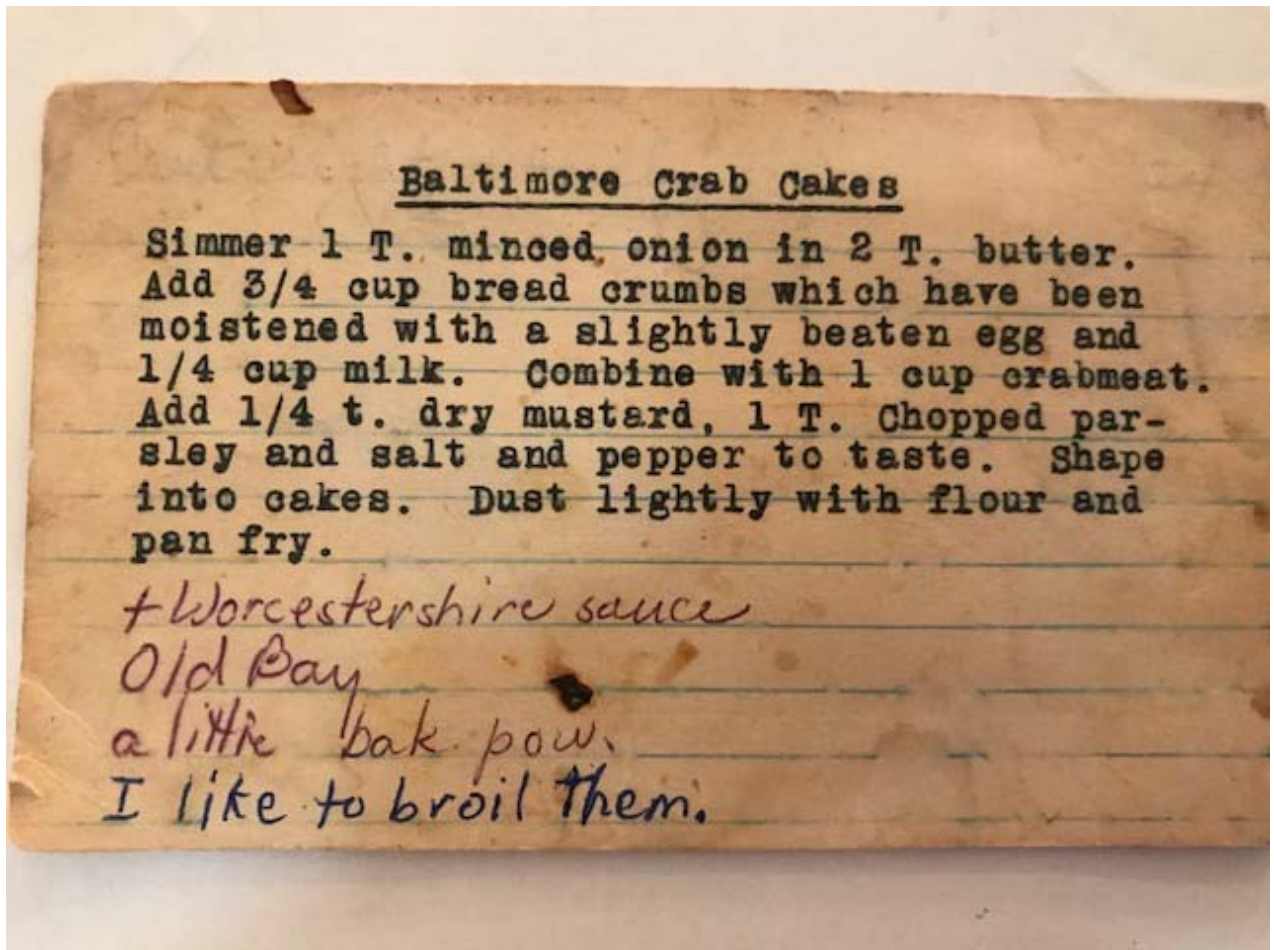 Baltimore Crab Cakes
Simmer 1 T. minced onion in 2 T. butter.
Add 3/4 cup bread crumbs which have been
moistened with a slightly beaten egg and
1/4 cup milk.  Combine with 1 cup crabmeat.
Add 1/4 t. dry mustard, 1 T. Chopped par-
sley and salt and pepper to taste.  Shape
into cakes.  Dust lightly with flour and
pan fry.
+ Worcestershire sauce
Old Bay
a little bak. pow.
I like to broil them.